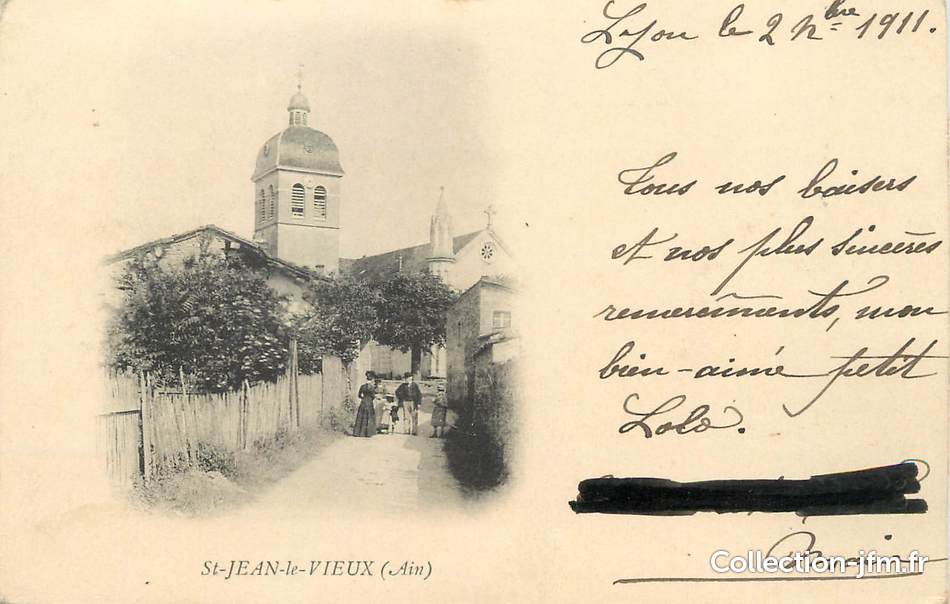 Lyon le 2 Nbre 1911.
Tous nos baisers
et nos plus sincères
remerciments, mon
bien-aimé petit
Lolo.
St-JEAN-le-VIEUX (Ain)
Collection-jfm.fr